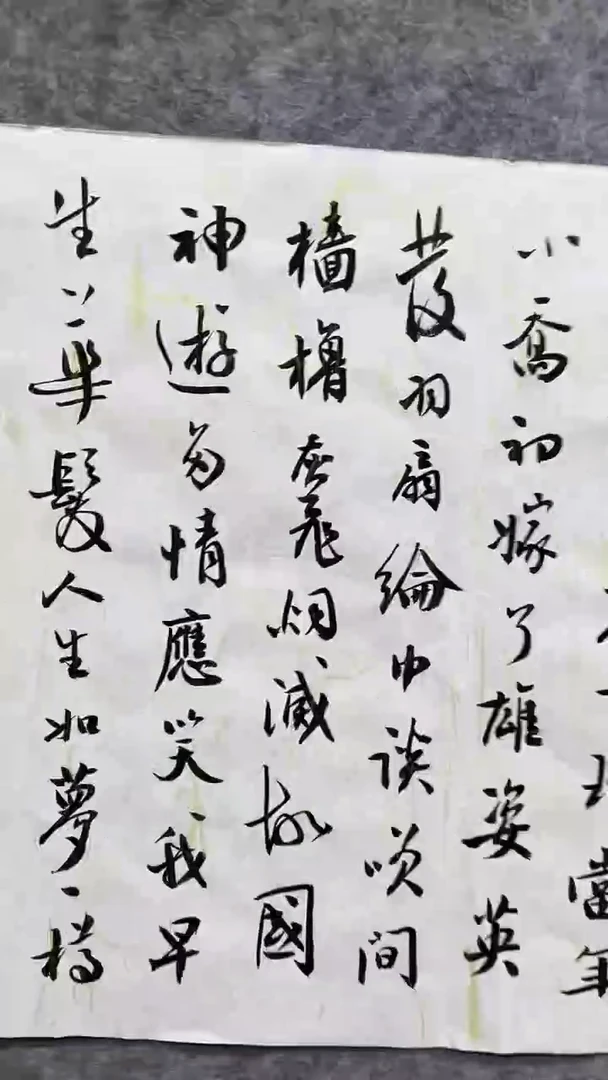 當年
小喬初嫁了雄姿英
發羽扇綸巾談咲間
檣櫓灰飛烟滅故國
神遊多情應笑我早
生華髮人生如夢一樽